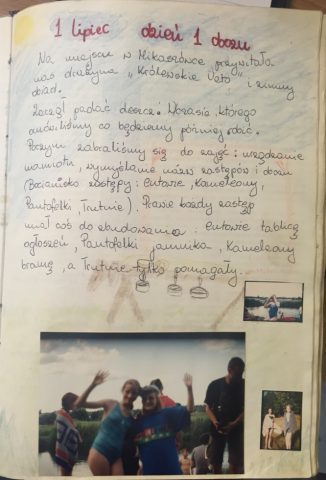 1 lipiec dzień 1 obozu
Na miejscu w Mikaszówce przywitała
nas drużyna "Królewskie Orły" i zimny
obiad.
Zaczął padać deszcz. Narada, którego
omówiliśmy co będziemy później robić.
Poczym zabraliśmy się do zajęć: urządzanie
namiotu, wymyślanie nazwy zastępów i obozu
(Bocianisko zastępy: , Kameleony,
Pantofelki, Trutnie). Prawie każdy zastęp
miał coś do zbudowania: tablicę
ogłoszeń, Pantofelki , Kameleony
bramę, a Trutnie tylko pomagały.